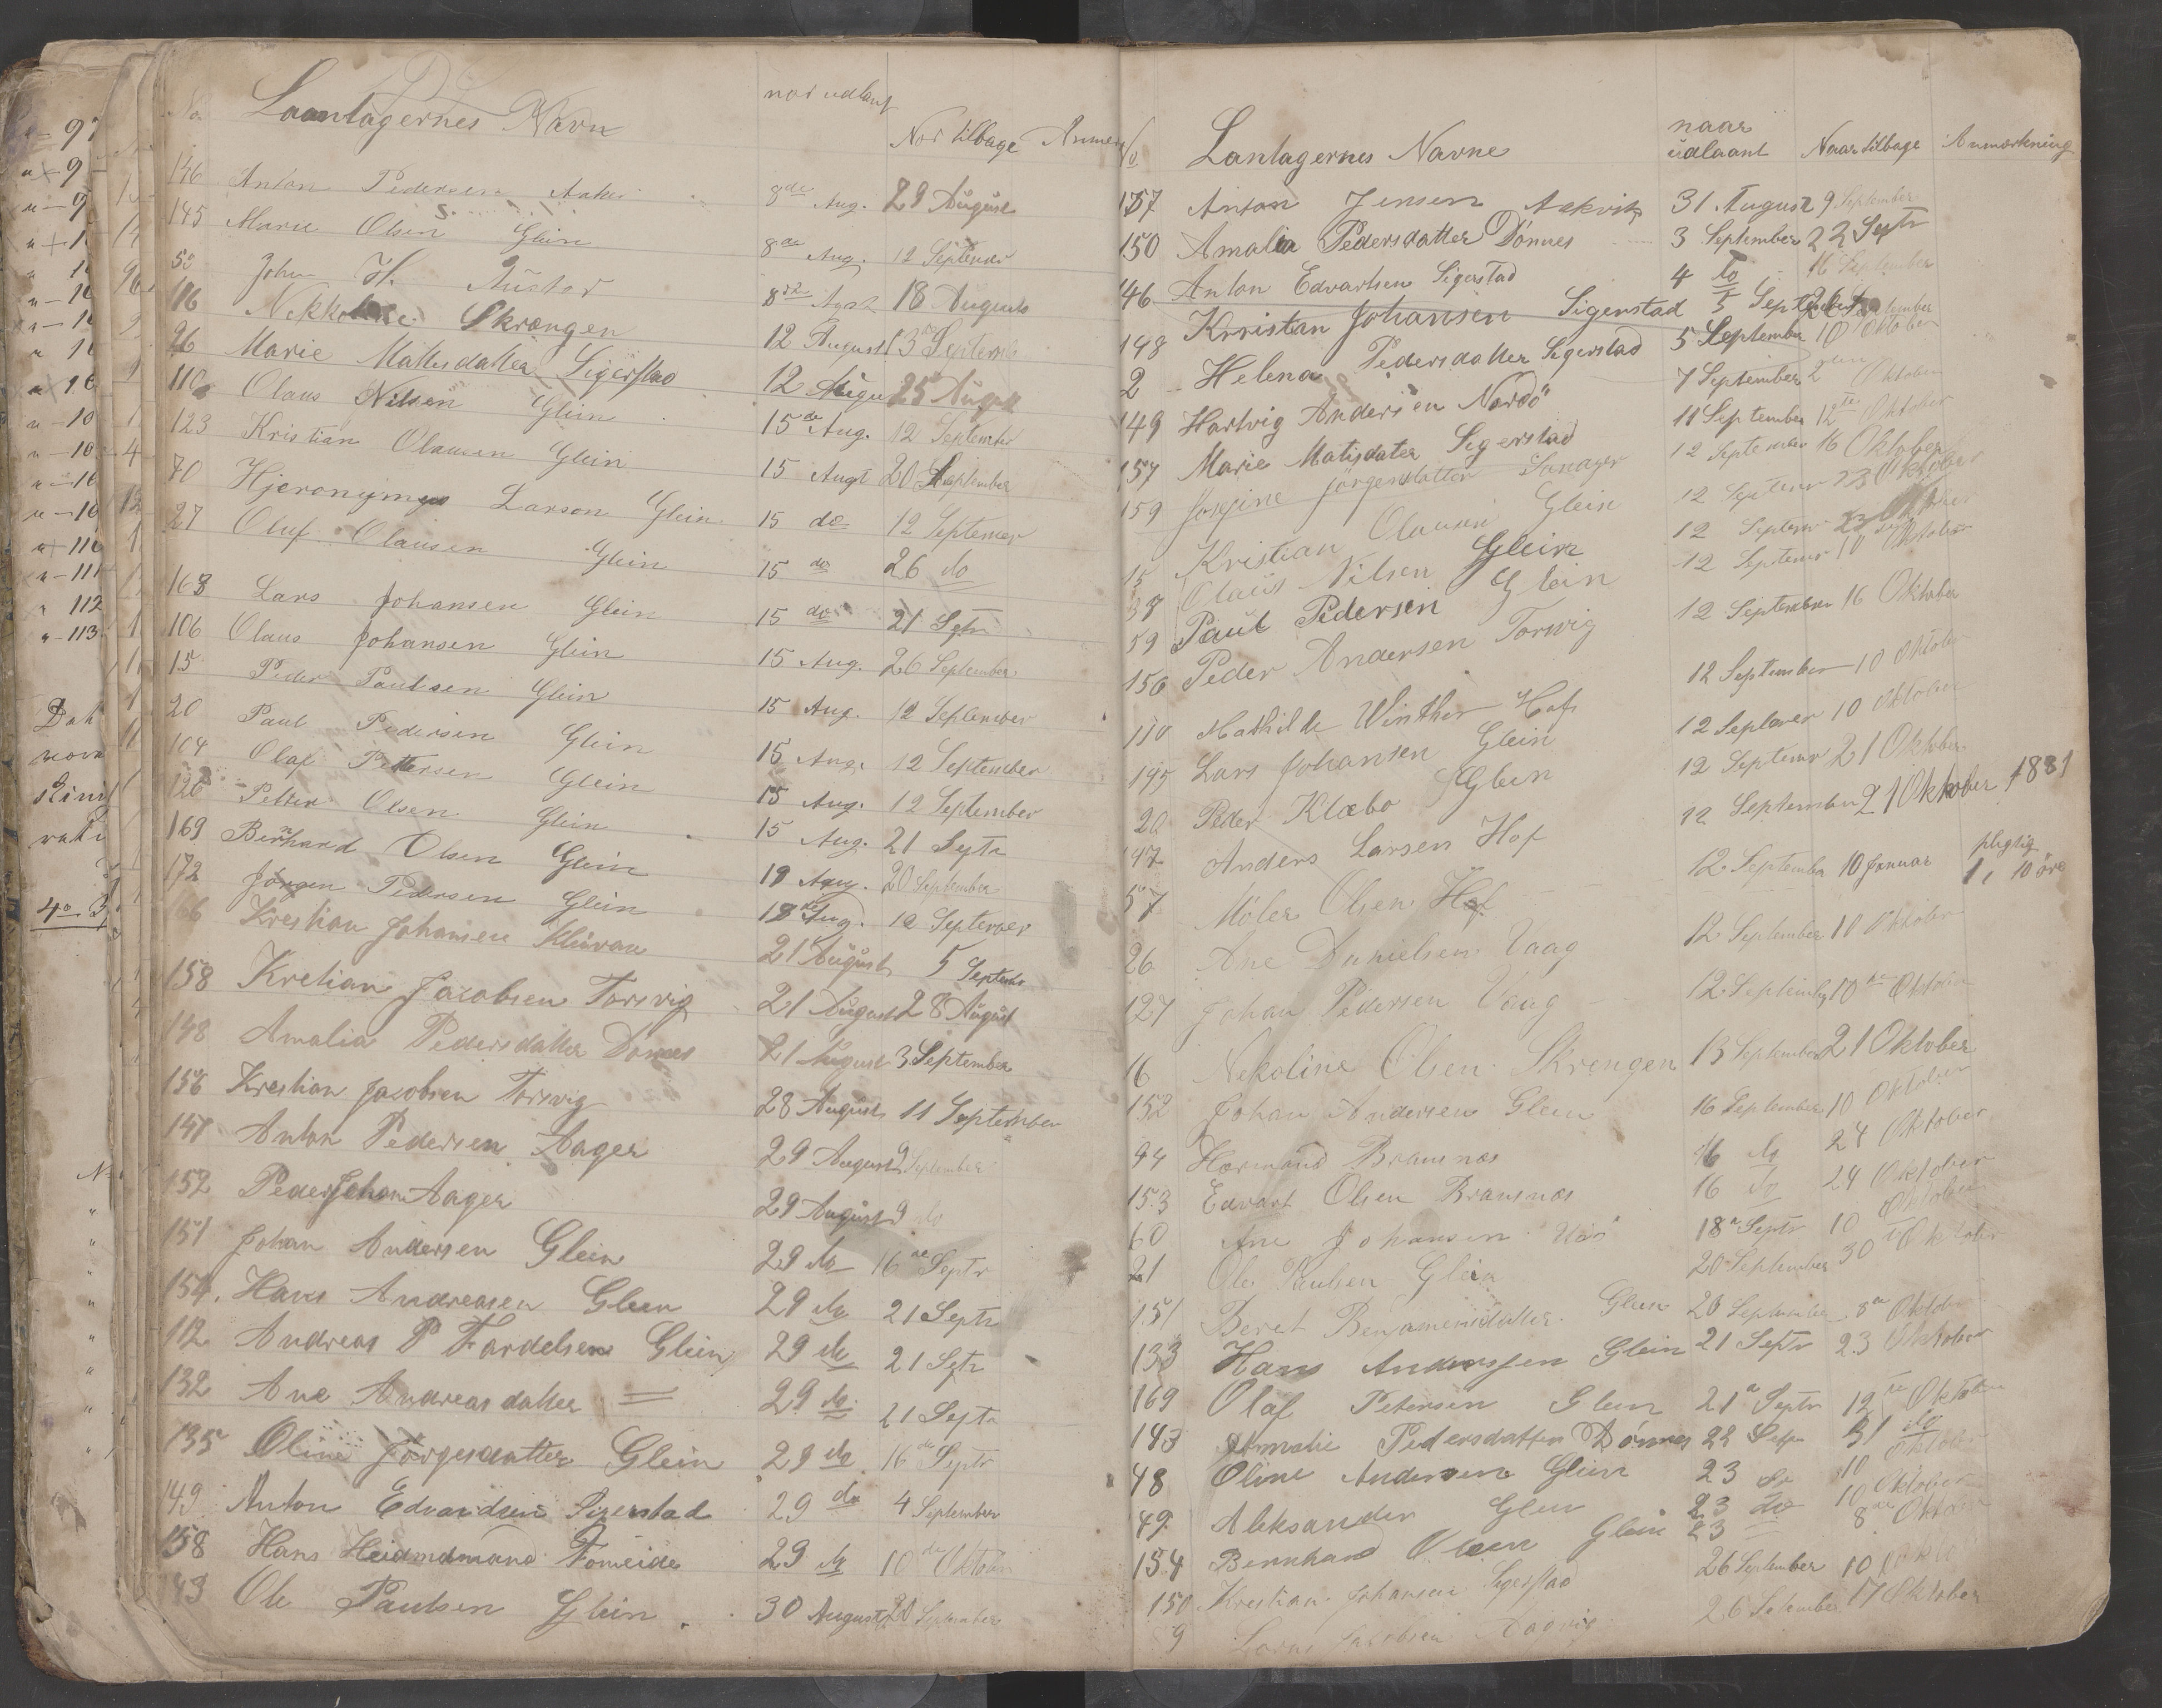 Laantagernes Navn nor udlaant Nor tilbage Anmer
146 Anton Pedersen Aaker 8de Aug. 29 August
145 Marie Olsen Glein 8de Aug. 12 September
50 John H. 8de Agst 18 August
116 Nekkoline Skrængen 12 August 3 September
26 Marie Mattisdatter Sigerstad 12 Augu 25 August
110 Olaus Nilsen Glein 15de Aug. 12 September
123 Kristian Olausen Glein 15 Augt 20 September
70 Hjeronymus Larson Glein 15 do 12 September
27 Oluf Olausen Glein 15 do 26 do
168 Lars Johansen Glein 15 do 21 Septr
106 Olaus Johansen Glein 15 Aug. 26 September
15 Peder Paulsen Glein 15 Aug. 12 September
20 Paul Pedersen Glein 15 Aug. 12 September
104 Olaf Pettersen Glein 15 Aug. 12 September
126 Petter Olsen Glein 15 Aug. 21 Septr
169 Bernhard Olsen Glein 19 Aug. 20 September
172 Jörgen Pedersen Glein 18de Aug. 12 September
166 Krestian Johansen 21 August 5 September
158 Kretian Jacobsen Torsvig 21 August 28 August
148 Amalia Pedersdatter Dønnes 21 August 3 September
156 Krestian Jacobsen Torsvig 28 August 11 September
147 Anton Pedersen Aager 29 August 9 September
152 Peder Johan Aager 29 August 9 do
151 Johan Andersen Glein 29 do 16de Septr
154. Hans Andreasen Glein 29 do 21 Septr
112 Andreas P Glein 29 do 21 Septr
132 Ane Andreasdatter = 29 do 21 Septr
135 Oline Jörgensdatter Glein 29 do 16de Septr
149 Anton Edvardsen Sigerstad 29 do 4 September
158 Hans Heidmdmand Tomeide 29 do 10de Oktober
143 Ole Paulsen Glein 30 August 20 September
No. Lantagernes Navne naar udlaant Naar tilbage Anmærkning
157 Anton Jensen Aakvik 31 August 9 September
150 Amalia Pedersdatter Dönnes 3 September 22 Septr
46 Anton Edvartsen Sigerstad 4 do 16 September
148 Kristan Johansen Sigerstad 5 September
2 Helena Pedersdatter Sigerstad 5 September 10 Oktober
149 Hartvig Andersen Nordö 7 September 2 Oktober
157 Marie Matisdater Segerstad 11 September 12te Oktober
159 Josefine Jörgensdatter 12 September 16 Oktober
15 Kristian Olausen Glein 12 September 23 Oktober
37 Olaus Nilsen Glein 12 September
59 Paul Pedersen Glein 12 September 10 Oktober
156 Peder Andersen Torvig 12 September 16 Oktober
110 Mathilde Winther Hof 12 September 10 Oktober
195 Lars Johansen Glein 12 September 10 Oktober
20 Peder Klæbo Glein 12 September 21 Oktober
147 Anders Larsen Hof 12 September 21 Oktober 1881
57 Olsen Hof 12 September 10 Januar pligtig 1, 10 öre
26 Ane Danielsen Vaag 12 September 10 Oktober
127 Johan Pedersen Vaag 12 September 10de Oktober
16 Nekoline Olsen Skrengen 13 September 21 Oktober
152 Johan Andersen Glein 16 September 10 Oktober
44 Hormand Bramnæs 16 do 24 Oktober
153 Edvart Olsen Bramnæs 16 do 24 Oktober
60 Ane Johansen 18de Septr 10 Oktober
21 Ole Paulsen Glein 20 September 30 Oktober
151 Beret Benjamensdatter Glein 20 September 8de Oktober
133 Hans Anderssen Glein 21 Septr 23 Oktober
169 Olaf Petersen Glein 21de Septr 12te Oktober
143 Amalie Pedersdatter Dönnes 22 Sept 31 do
48 Oline Andersen Glein 23 do 10 Oktober
49 Aleksander Glein 23 do 10 Oktober
154 Bernhard Olsen Glein 23 8de Oktober
150 Krestian Johansen Segerstad 26 September 10 Oktober
9 26 September 17 Oktober